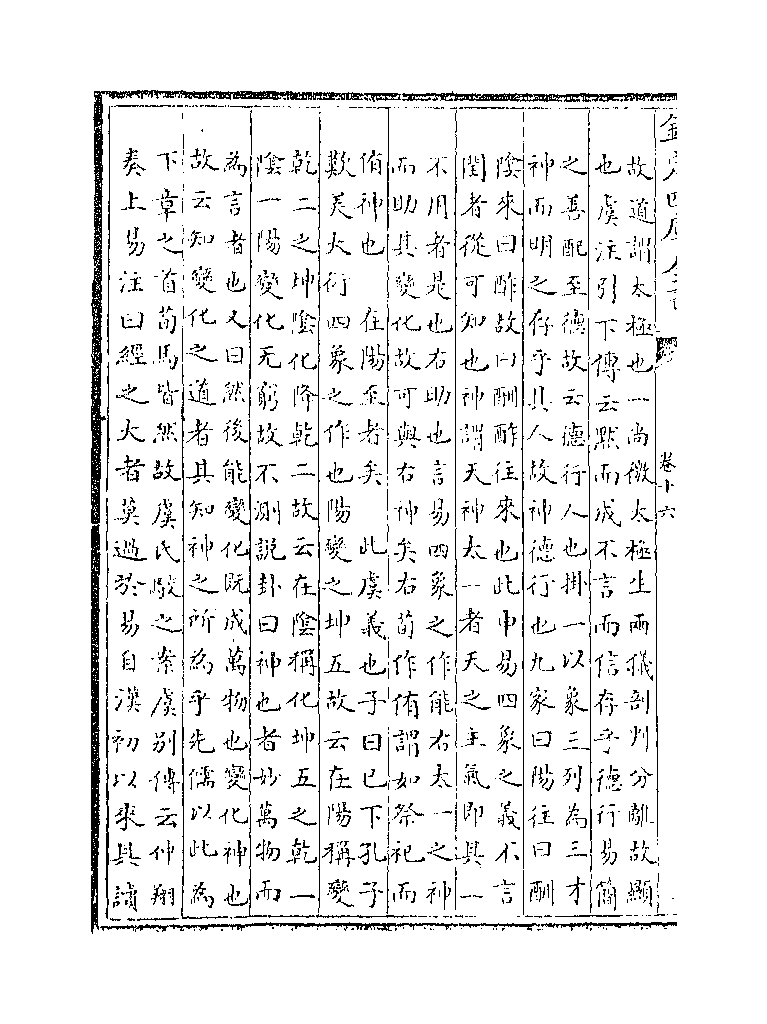 欽定四庫全書
卷十六
故道謂太極也一尚微太極生兩儀剖判分離故顯
也虞注引下傳云黙而成不言而信存乎德行易簡
之善配至德故云德行人也掛一以象三列為三才
神而明之存乎其人故神德行也九家曰陽往曰酬
陰來曰酢故曰酬酢往來也此申易四象之義不言
閏者從可知也神謂天神太一者天之主氣即其一
不用者是也右助也言易四象之作能右太一之神
而助其變化故可與右神矣右荀作侑謂如祭祀而
侑神也　在陽至者矣　此虞義也子曰已下孔子
歎美大衍四象之作也陽變之坤五故云在陽稱變
乾二之坤陰化降乾二故云在陰稱化坤五之乾一
陰一陽變化无窮故不測説卦曰神也者妙萬物而
為言者也又曰然後能變化既成萬物也變化神也
故云知變化之道者其知神之所為乎先儒以此為
下章之首荀馬皆然故虞氏駮之案虞别傳云仲翔
奏上易注曰經之大者莫過於易自漢初以來其讀